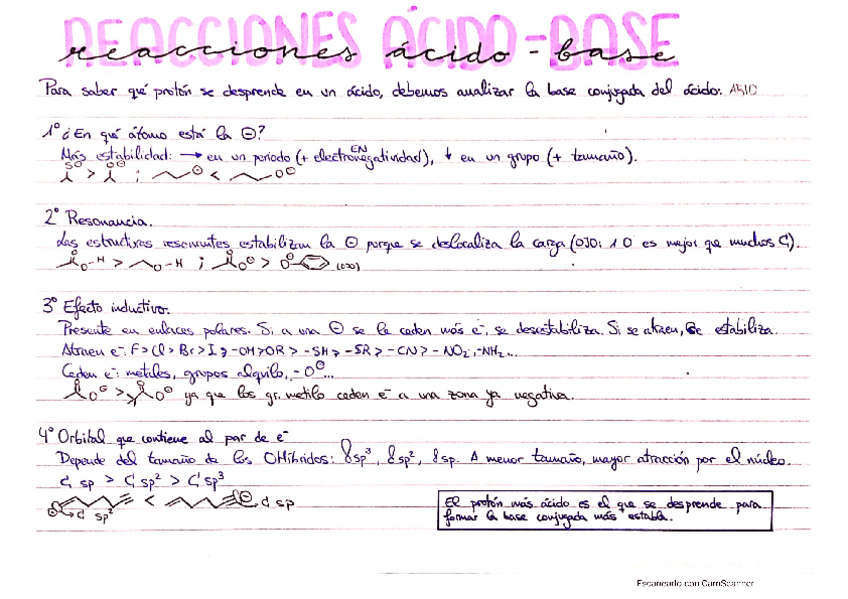 REACCIONES ÁCIDO-BASE
reacciones ácido - base
Para saber qué protón se desprende en un ácido, debemos analizar la base conjugada del ácido: ARIO
1º ¿En qué átomo está la ⊖?
Más estabilidad: → en un periodo (+ electronegatividad), ↓ en un grupo (+ tamaño).
EN
> ; ⊖ < O⊖
2º Resonancia.
Las estructuras resonantes estabilizan la ⊖ porque se deslocaliza la carga (OJO: 1 O es mejor que muchos C).
O-H > O-H ; O⊖ > O⊖ (OJO)
3º Efecto inductivo.
Presente en enlaces polares. Si a una ⊖ se le ceden más e⁻, se desestabiliza. Si se atraen, se estabiliza.
Atraen e⁻: F > Cl > Br > I > -OH > OR > -SH > -SR > -CN > -NO₂, -NH₂...
Ceden e⁻: metiles, grupos alquilo, -O⊖...
O⊖ > O⊖ ya que los gr. metilo ceden e⁻ a una zona ya negativa.
4º Orbital que contiene al par de e⁻
Depende del tamaño de los OHíbridos: sp³, sp², sp. A menor tamaño, mayor atracción por el núcleo.
C sp > C sp² > C sp³
⊖ C sp² < ⊖ C sp
El protón más ácido es el que se desprende para
formar la base conjugada más estable.
Escaneado con CamScanner